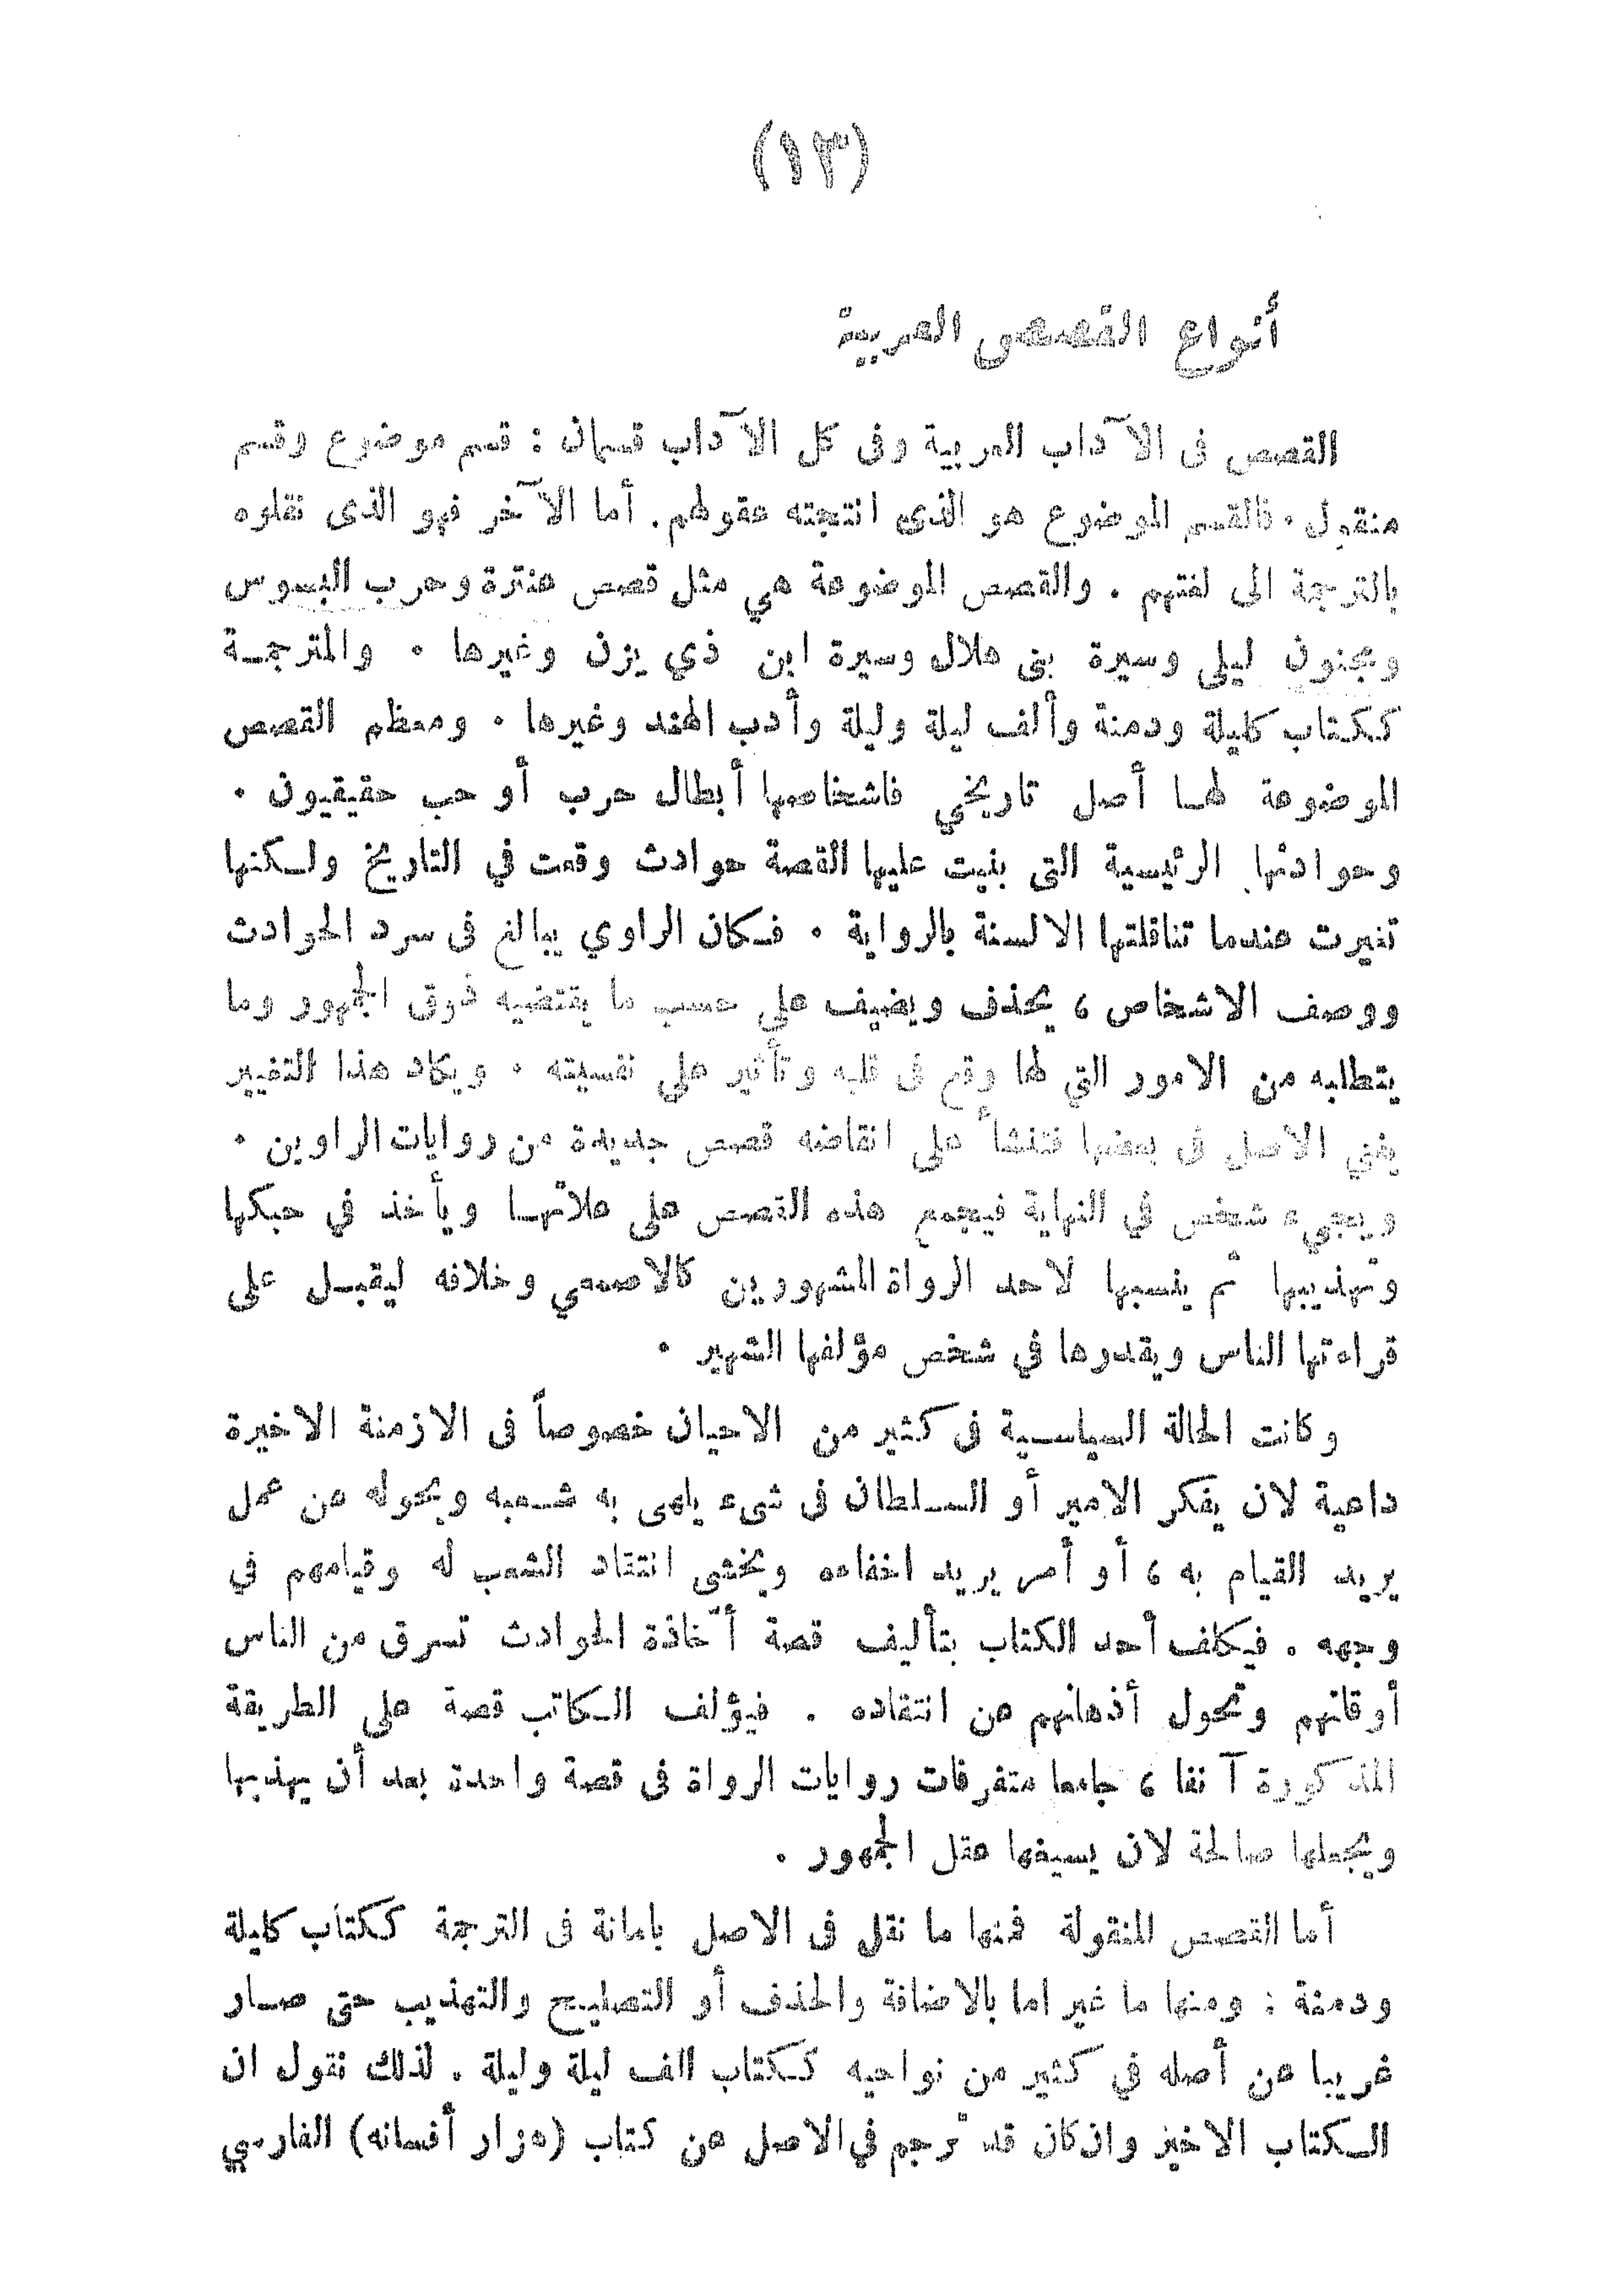 (١٣)
أنواع القصص العربية
القصص فى الآداب العربية وفى كل الآداب قسمان : قسم موضوع وقسم
منقول . فالقسم الموضوع هو الذى انتجته عقولهم . أما الآخر فهو الذى نقلوه
بالترجمة الى لغتهم . والقصص الموضوعة هي مثل قصص عنترة وحرب البسوس
ومجنون ليلى وسيرة بنى هلال وسيرة ابن ذي يزن وغيرها . والمترجمة
ككتاب كليلة ودمنة وألف ليلة وليلة وأدب الهند وغيرها . ومعظم القصص
الموضوعة لها أصل تاريخي فاشخاصها أبطال حرب أو حب حقيقيون .
وحوادثها الرئيسية التى بنيت عليها القصة حوادث وقعت في التاريخ ولكنها
تغيرت عندما تناقلتها الالسنة بالرواية . فكان الراوي يبالغ فى سرد الحوادث
ووصف الاشخاص ، يحذف ويضيف على حسب ما يقتضيه ذوق الجمهور وما
يتطلبه من الامور التي لها وقع فى قلبه وتأثير على نفسيته . ويكاد هذا التغيير
يفني الاصل فى بعضها فتنشأ على انقاضه قصص جديدة من روايات الراوين .
ويجيء شخص في النهاية فيجمع هذه القصص على علاتها ويأخذ في حبكها
وتهذيبها ثم ينسبها لاحد الرواة المشهورين كالاصمعي وخلافه ليقبل على
قراءتها الناس ويقدروها في شخص مؤلفها الشهير .
وكانت الحالة السياسية فى كثير من الاحيان خصوصاً فى الازمنة الاخيرة
داعية لان يفكر الامير أو السلطان فى شىء يلهى به شعبه ويحوله عن عمل
يريد القيام به ، أو أمر يريد اخفاءه ويخشى انتقاد الشعب له وقيامهم في
وجهه . فيكلف أحد الكتاب بتأليف قصة أخاذة الحوادث تسرق من الناس
أوقاتهم وتحول أذهانهم عن انتقاده . فيؤلف الكاتب قصة على الطريقة
المذكورة آنفا ، جامعا متفرقات روايات الرواة فى قصة واحدة بعد أن يهذبها
ويجعلها صالحة لان يسيغها عقل الجمهور .
أما القصص المنقولة فمنها ما نقل فى الاصل بامانة فى الترجمة ككتاب كليلة
ودمنة : ومنها ما غير اما بالاضافة والحذف أو التصليح والتهذيب حتى صار
غريبا عن أصله في كثير من نواحيه ككتاب الف ليلة وليلة . لذلك نقول ان
الكتاب الاخير وان كان قد ترجم في الاصل عن كتاب (هزار أفسانه) الفارسي